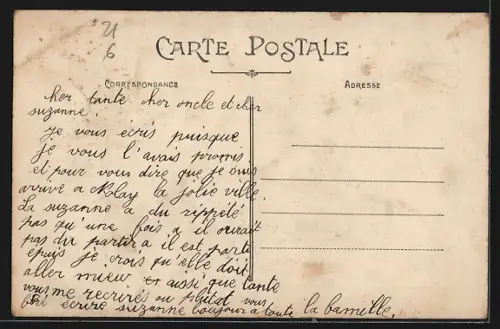 21
6
CARTE POSTALE
CORRESPONDANCE
ADRESSE
her tante her oncle et cher
suzanne!
je vous écris puisque
je vous l'avais promis
et pour vous dire que je suis
arrivé a Blay la jolie ville.
La suzanne a du rippété
pas qu une fois a il
pas du partir a il est parti
épuis je crois qu'elle doit
aller mieux et aussi que tante
vous me recrirés ou plutot vous
écrire suzanne boujour a toute la bamille,